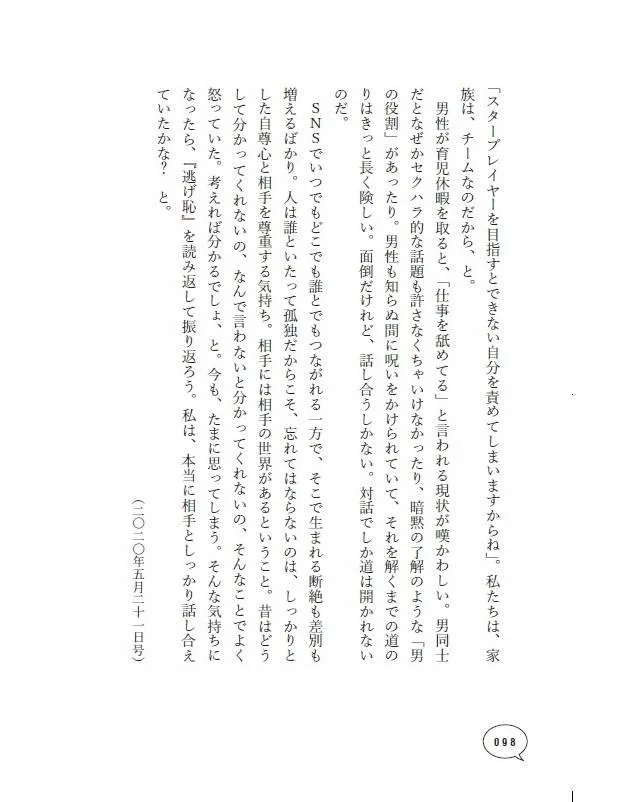 「スタープレイヤーを目指すとできない自分を責めてしまいますからね」。私たちは、家
族は、チームなのだから、と。
男性が育児休暇を取ると、「仕事を舐めてる」と言われる現状が嘆かわしい。男同士
だとなぜかセクハラ的な話題も許さなくちゃいけなかったり、暗黙の了解のような「男
の役割」があったり。男性も知らぬ間に呪いをかけられていて、それを解くまでの道の
りはきっと長く険しい。面倒だけれど、話し合うしかない。対話でしか道は開かれない
のだ。
SNSでいつでもどこでも誰とでもつながれる一方で、そこで生まれる断絶も差別も
増えるばかり。人は誰といたって孤独だからこそ、忘れてはならないのは、しっかりと
した自尊心と相手を尊重する気持ち。相手には相手の世界があるということ。昔はどう
して分かってくれないの、なんで言わないと分かってくれないの、そんなことでよく
怒っていた。考えれば分かるでしょ、と。今も、たまに思ってしまう。そんな気持ちに
なったら、『逃げ恥』を読み返して振り返ろう。私は、本当に相手としっかり話し合え
ていたかな? と。
(二〇二〇年五月二十一日号)
098